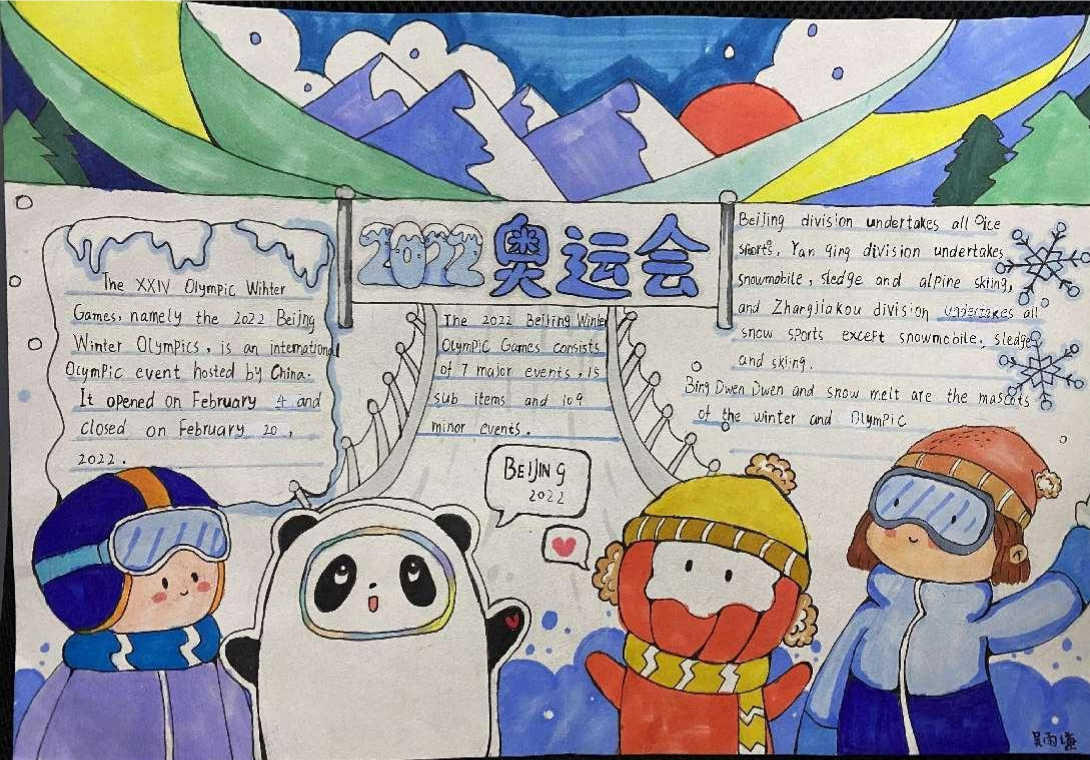 2022 奥运会
The XXIV Olympic Winter
Games, namely the 2022 Beijing
Winter Olympics, is an international
Olympic event hosted by China.
It opened on February 4 and
closed on February 20,
2022.
The 2022 Beijing Winter
Olympic Games consists
of 7 major events, 15
sub items and 109
minor events.
Beijing division undertakes all ice
sports, Yan qing division undertakes
snowmobile, sledge and alpine skiing,
and Zhangjiakou division undertakes all
snow sports except snowmobile, sledge
and skiing.
Bing Dwen Dwen and snow melt are the mascots
of the winter and Olympic
BEIJING
2022
吴雨